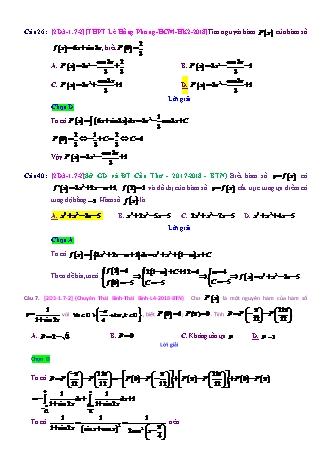 Câu 26: [2D3-1.7-2] [THPT Lê Hồng Phong-HCM-HK2-2018] Tìm nguyên hàm F(x) của hàm số
f(x)=6x+sin3x, biết F(0)=2/3
A. F(x)=3x²-cos3x/3+2/3 B. F(x)=3x²-cos3x/3-1
C. F(x)=3x²+cos3x/3+1 D. F(x)=3x²-cos3x/3+1
Lời giải
Chọn D
Ta có F(x)=∫(6x+sin3x)dx=3x²-1/3cos3x+C
F(0)=2/3⇔-1/3+C=2/3⇔C=1
Vậy F(x)=3x²-cos3x/3+1
Câu 40: [2D3-1.7-2] (Sở GD và ĐT Cần Thơ - 2017-2018 - BTN) Biết hàm số y=f(x) có
f'(x)=3x²+2x-m+1, f(2)=1 và đồ thị của hàm số y=f(x) cắt trục tung tại điểm có
tung độ bằng -5. Hàm số f(x) là
A. x³+x²-3x-5 B. x³+2x²-5x-5 C. 2x³+x²-7x-5 D. x³+x²+4x-5
Lời giải
Chọn A
Ta có f(x)=∫(3x²+2x-m+1)dx=x³+x²+(1-m)x+C
Theo đề bài, ta có {f(2)=1 f(0)=-5 ⇔ {2(1-m)+C+12=1 C=-5 ⇔ {m=4 C=-5 ⇒ f(x)=x³+x²-3x-5
Câu 7. [2D3-1.7-2] (Chuyên Thái Bình-Thái Bình-L4-2018-BTN) Cho F(x) là một nguyên hàm của hàm số
y=1/(1+sin2x) với ∀x∈ℝ\{-π/4+kπ, k∈ℤ}, biết F(0)=1, F(π)=0. Tính P=F(-π/12)-F(11π/12)
A. P=2-√3 B. P=0 C. Không tồn tại P D. P=1
Lời giải
Chọn D